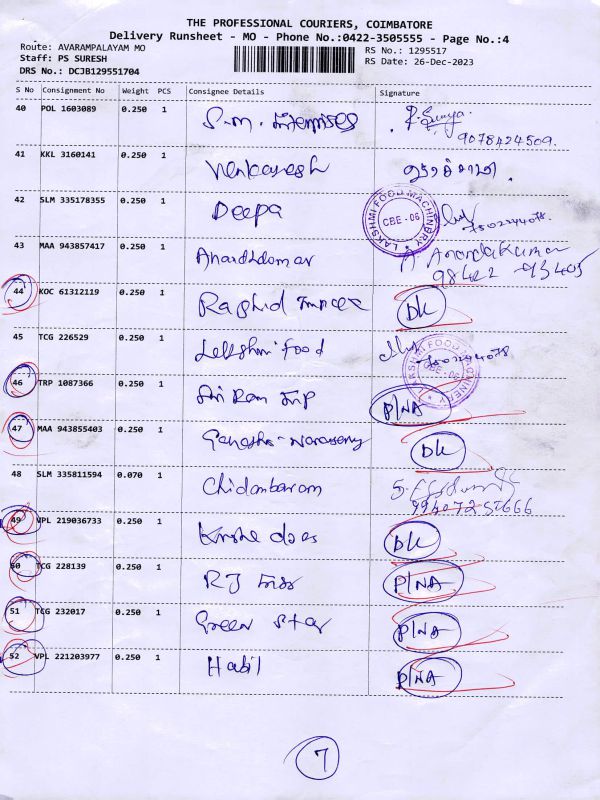 THE PROFESSIONAL COURIERS, COIMBATORE
Delivery Runsheet - MO - Phone No.:0422-3505555 - Page No.:4
Route: AVARAMPALAYAM MO
RS No.: 1295517
Staff: PS SURESH
RS Date: 26-Dec-2023
DRS No.: DCJB129551704
S No Consignment No Weight PCS Consignee Details Signature
40 POL 1603089 0.250 1 S.M. Enterprises R. Surya
9078424509.
41 KKL 3160141 0.250 1 Venkatesh
42 SLM 335178355 0.250 1 Deepa
LAKSHMI FOOD MACHINERY
CBE - 06
43 MAA 943857417 0.250 1 Anandkumar Anandakumar
98422
44 KOC 61312119 0.250 1 Rashid Impex DL
45 TCG 226529 0.250 1 Lakshmi Food
LAKSHMI FOOD MACHINERY
CBE - 06
46 TRP 1087366 0.250 1 Sri Ram P/NA
47 MAA 943855403 0.250 1 Ganesha DL
48 SLM 335811594 0.070 1 Chidambaram
49 VPL 219036733 0.250 1 DL
50 TCG 228139 0.250 1 RJ P/NA
51 TCG 232017 0.250 1 Green Star P/NA
52 VPL 221203977 0.250 1 Habil P/NA
7